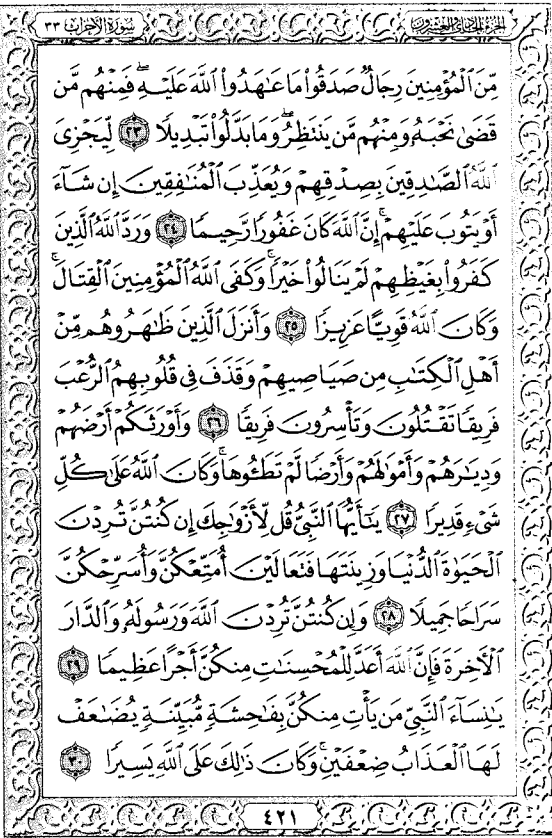 الجزء الحادي والعشرون
سورة الأحزاب ٣٣
مِّنَ ٱلْمُؤْمِنِينَ رِجَالٌ صَدَقُوا۟ مَا عَٰهَدُوا۟ ٱللَّهَ عَلَيْهِ ۖ فَمِنْهُم مَّن
قَضَىٰ نَحْبَهُۥ وَمِنْهُم مَّن يَنتَظِرُ ۖ وَمَا بَدَّلُوا۟ تَبْدِيلًا ٢٣ لِّيَجْزِىَ
ٱللَّهُ ٱلصَّٰدِقِينَ بِصِدْقِهِمْ وَيُعَذِّبَ ٱلْمُنَٰفِقِينَ إِن شَآءَ
أَوْ يَتُوبَ عَلَيْهِمْ ۚ إِنَّ ٱللَّهَ كَانَ غَفُورًا رَّحِيمًا ٢٤ وَرَدَّ ٱللَّهُ ٱلَّذِينَ
كَفَرُوا۟ بِغَيْظِهِمْ لَمْ يَنَالُوا۟ خَيْرًا ۚ وَكَفَى ٱللَّهُ ٱلْمُؤْمِنِينَ ٱلْقِتَالَ ۚ
وَكَانَ ٱللَّهُ قَوِيًّا عَزِيزًا ٢٥ وَأَنزَلَ ٱلَّذِينَ ظَٰهَرُوهُم مِّنْ
أَهْلِ ٱلْكِتَٰبِ مِن صَيَاصِيهِمْ وَقَذَفَ فِى قُلُوبِهِمُ ٱلرُّعْبَ
فَرِيقًا تَقْتُلُونَ وَتَأْسِرُونَ فَرِيقًا ٢٦ وَأَوْرَثَكُمْ أَرْضَهُمْ
وَدِيَٰرَهُمْ وَأَمْوَٰلَهُمْ وَأَرْضًا لَّمْ تَطَـُٔوهَا ۚ وَكَانَ ٱللَّهُ عَلَىٰ كُلِّ
شَىْءٍ قَدِيرًا ٢٧ يَٰٓأَيُّهَا ٱلنَّبِىُّ قُل لِّأَزْوَٰجِكَ إِن كُنتُنَّ تُرِدْنَ
ٱلْحَيَوٰةَ ٱلدُّنْيَا وَزِينَتَهَا فَتَعَالَيْنَ أُمَتِّعْكُنَّ وَأُسَرِّحْكُنَّ
سَرَاحًا جَمِيلًا ٢٨ وَإِن كُنتُنَّ تُرِدْنَ ٱللَّهَ وَرَسُولَهُۥ وَٱلدَّارَ
ٱلْءَاخِرَةَ فَإِنَّ ٱللَّهَ أَعَدَّ لِلْمُحْسِنَٰتِ مِنكُنَّ أَجْرًا عَظِيمًا ٢٩
يَٰنِسَآءَ ٱلنَّبِىِّ مَن يَأْتِ مِنكُنَّ بِفَٰحِشَةٍ مُّبَيِّنَةٍ يُضَٰعَفْ
لَهَا ٱلْعَذَابُ ضِعْفَيْنِ ۚ وَكَانَ ذَٰلِكَ عَلَى ٱللَّهِ يَسِيرًا ٣٠
٤٢١